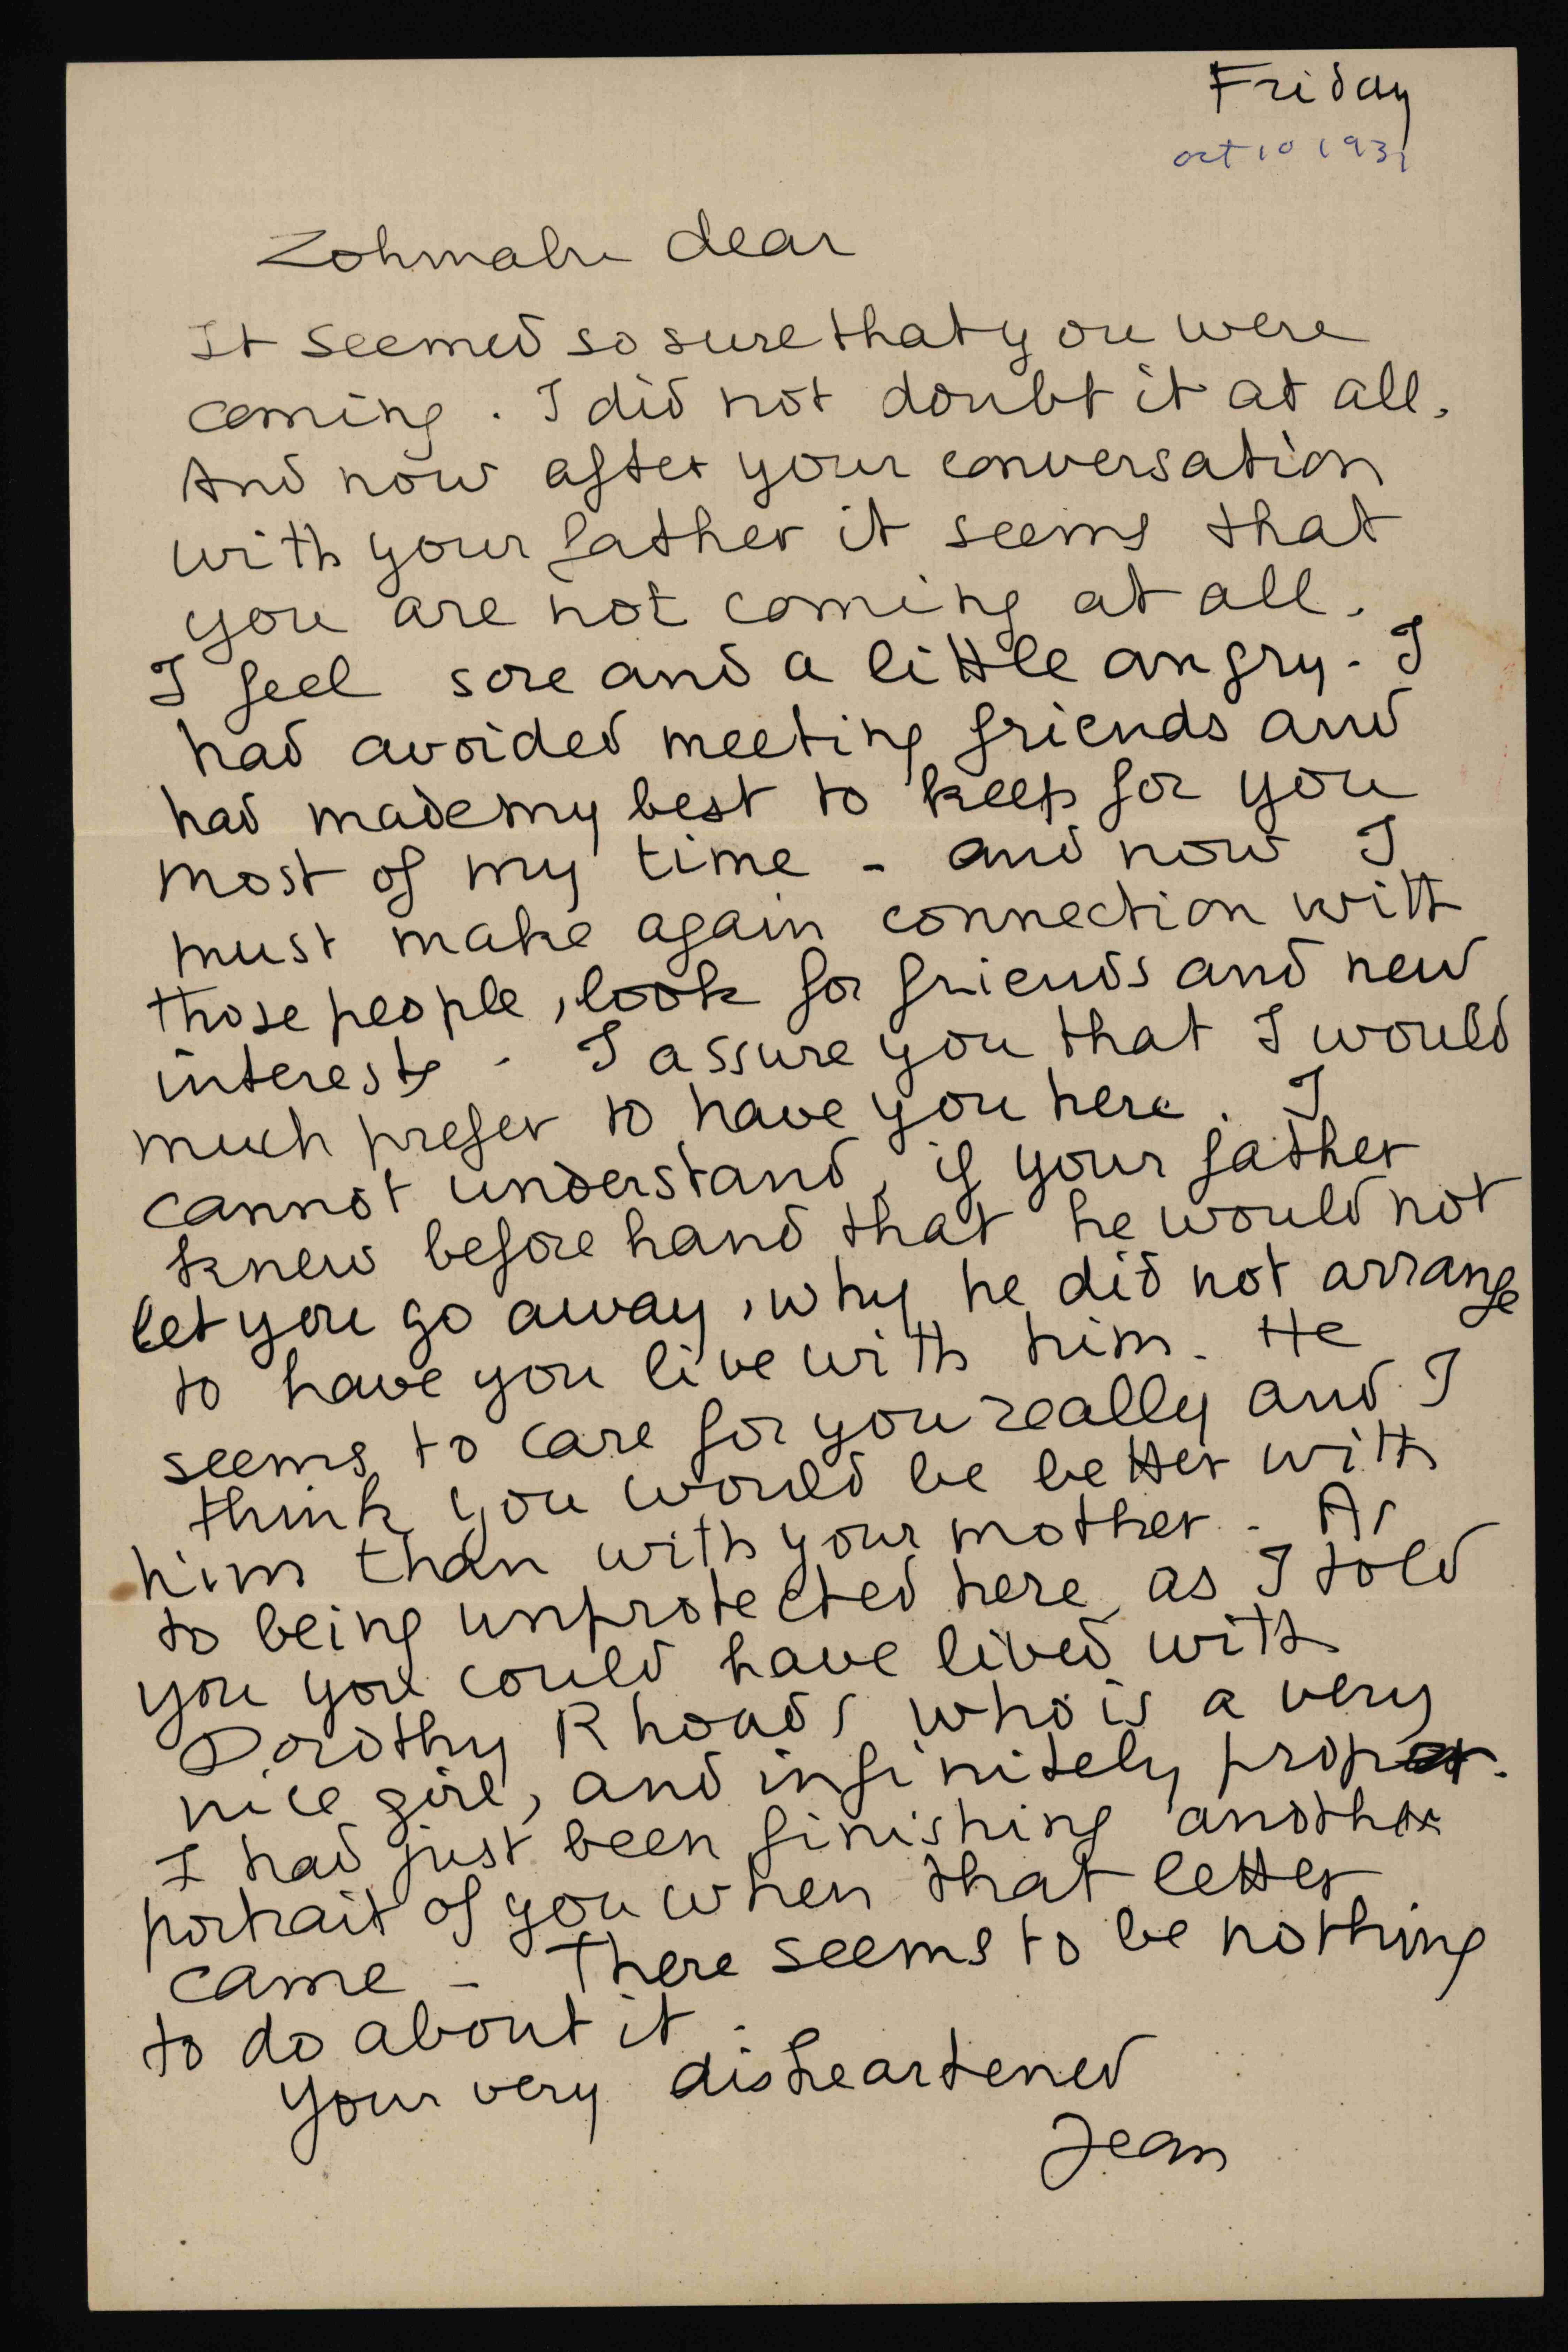 Friday
oct 10 1931
Zohmah dear
It seemed so sure that you were
coming. I did not doubt it at all.
And now after your conversation
with your father it seems that
you are not coming at all.
I feel sore and a little angry. I
had avoided meeting friends and
had made my best to keep for you
most of my time - and now I
must make again connection with
those people, look for friends and new
interests - I assure you that I would
much prefer to have you here. I
cannot understand, if your father
knew before hand that he would not
let you go away, why he did not arrange
to have you live with him. He
seems to care for you really and I
think you would be better with
him than with your mother. As
to being unprotected here, as I told
you you could have lived with
Dorothy Rhoads who is a very
nice girl, and infinitely proper.
I had just been finishing another
portrait of you when that letter
came - There seems to be nothing
to do about it.
Your very disheartened
Jean